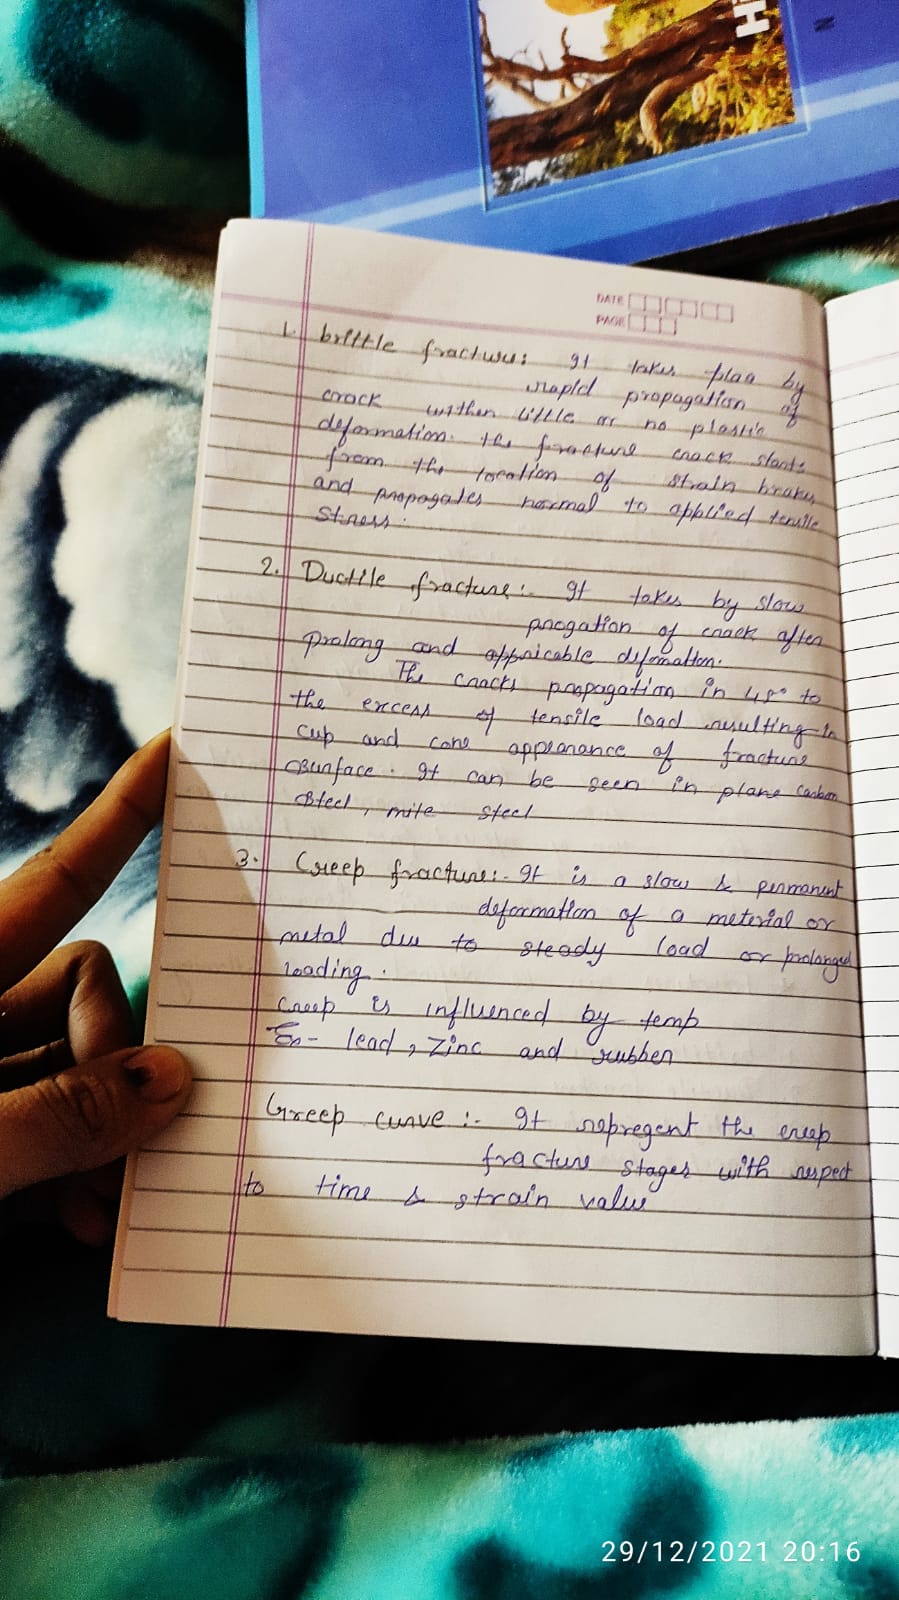 H
N
DATE
PAGE
1. brittle fracture: It takes plaa by
rapid propagation of
crack withen little or no plastic
deformation. the fracture crack starts
from the location of strain brakes
and propagates normal to applied tensile
stress.
2. Ductile fracture:- It takes by slow
progation of crack after
prolong and appricable difomation.
The cracks propagation in 45° to
the excess of tensile load resulting in
cup and cone appearance of fracture
surface. It can be seen in plane carbon
steel, mite steel
3. Creep fracture:- It is a slow & permanent
deformation of a meterial or
metal due to steady load or prolonged
loading.
creep is influenced by temp
Ex- lead, Zinc and rubber
Creep curve:- It repregent the creep
fracture stages with respect
to time & strain value
29/12/2021 20:16